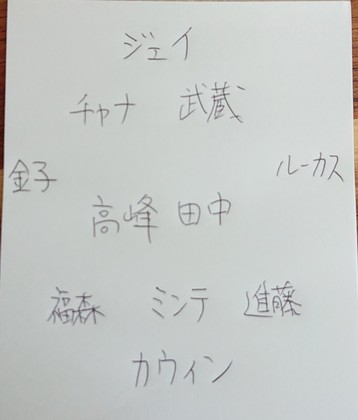 ジェイ
チャナ 武蔵
金子 ルーカス
高峰 田中
福森 ミンテ 進藤
カウィン